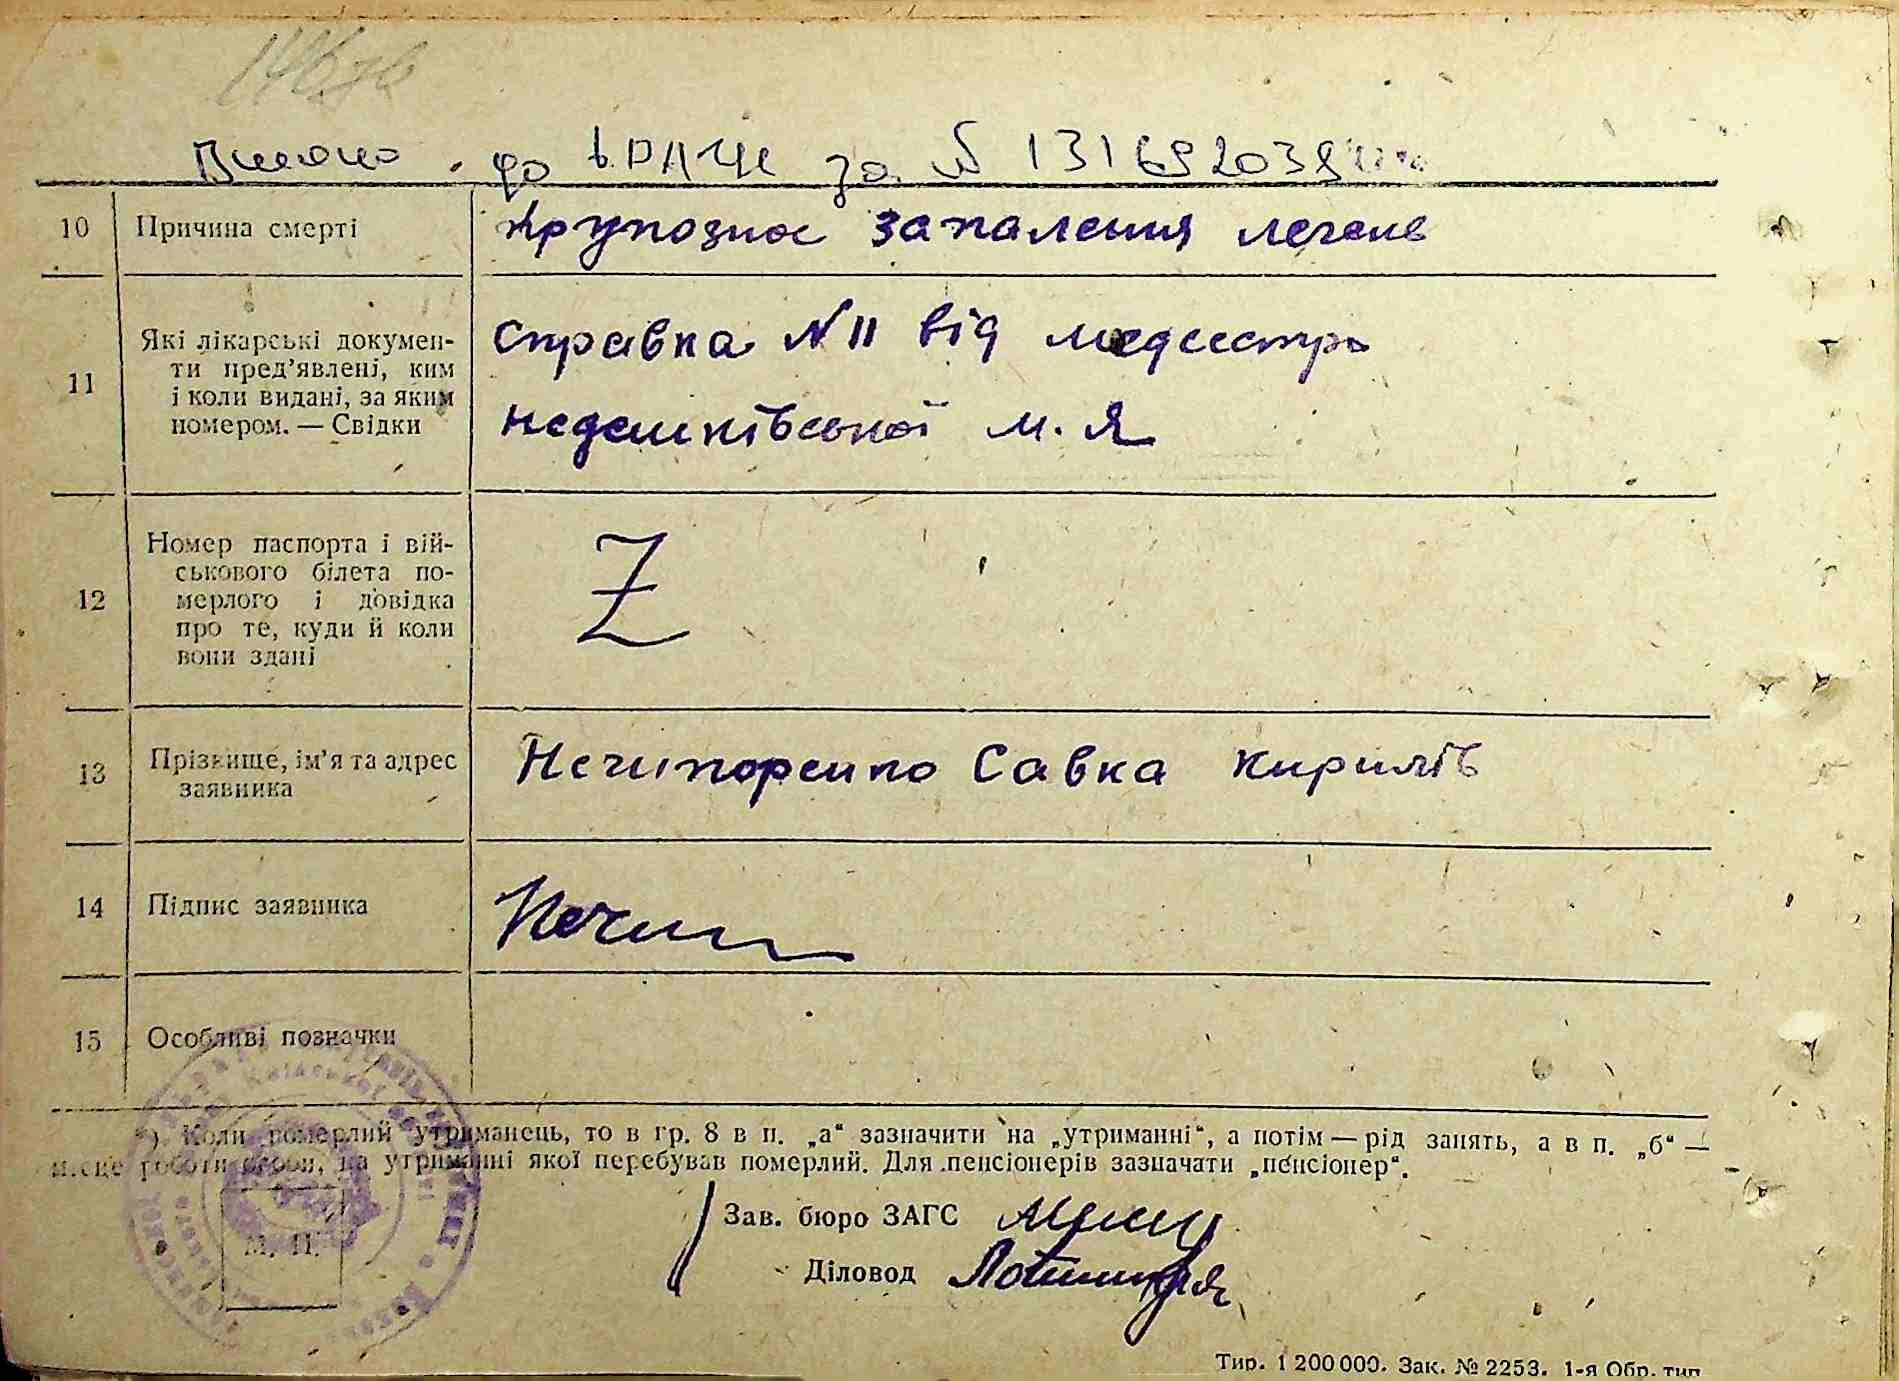 Внесено до ДРАЦС за № 131692039
10 Причина смерті Крупозное запалення легень
11 Які лікарські докумен-
ти пред'явлені, ким
і коли видані, за яким
номером. — Свідки
Справка № 11 від медсестри
м. Я
12 Номер паспорта і вій-
ськового білета по-
мерлого і довідка
про те, куди й коли
вони здані
Z
13 Прізвище, ім'я та адрес
заявника
Нечипоренко Савка Кирилів
14 Підпис заявника Нечип
15 Особливі позначки
*) Коли померлий утриманець, то в гр. 8 в п. „а“ зазначити на „утриманні“, а потім — рід занять, а в п. „б“ —
місце роботи особи, на утриманні якої перебував померлий. Для пенсіонерів зазначати „пенсіонер“.
М. П.
Зав. бюро ЗАГС
Діловод
Тир. 1 200 000. Зак. № 2253. 1-я Обр. тип